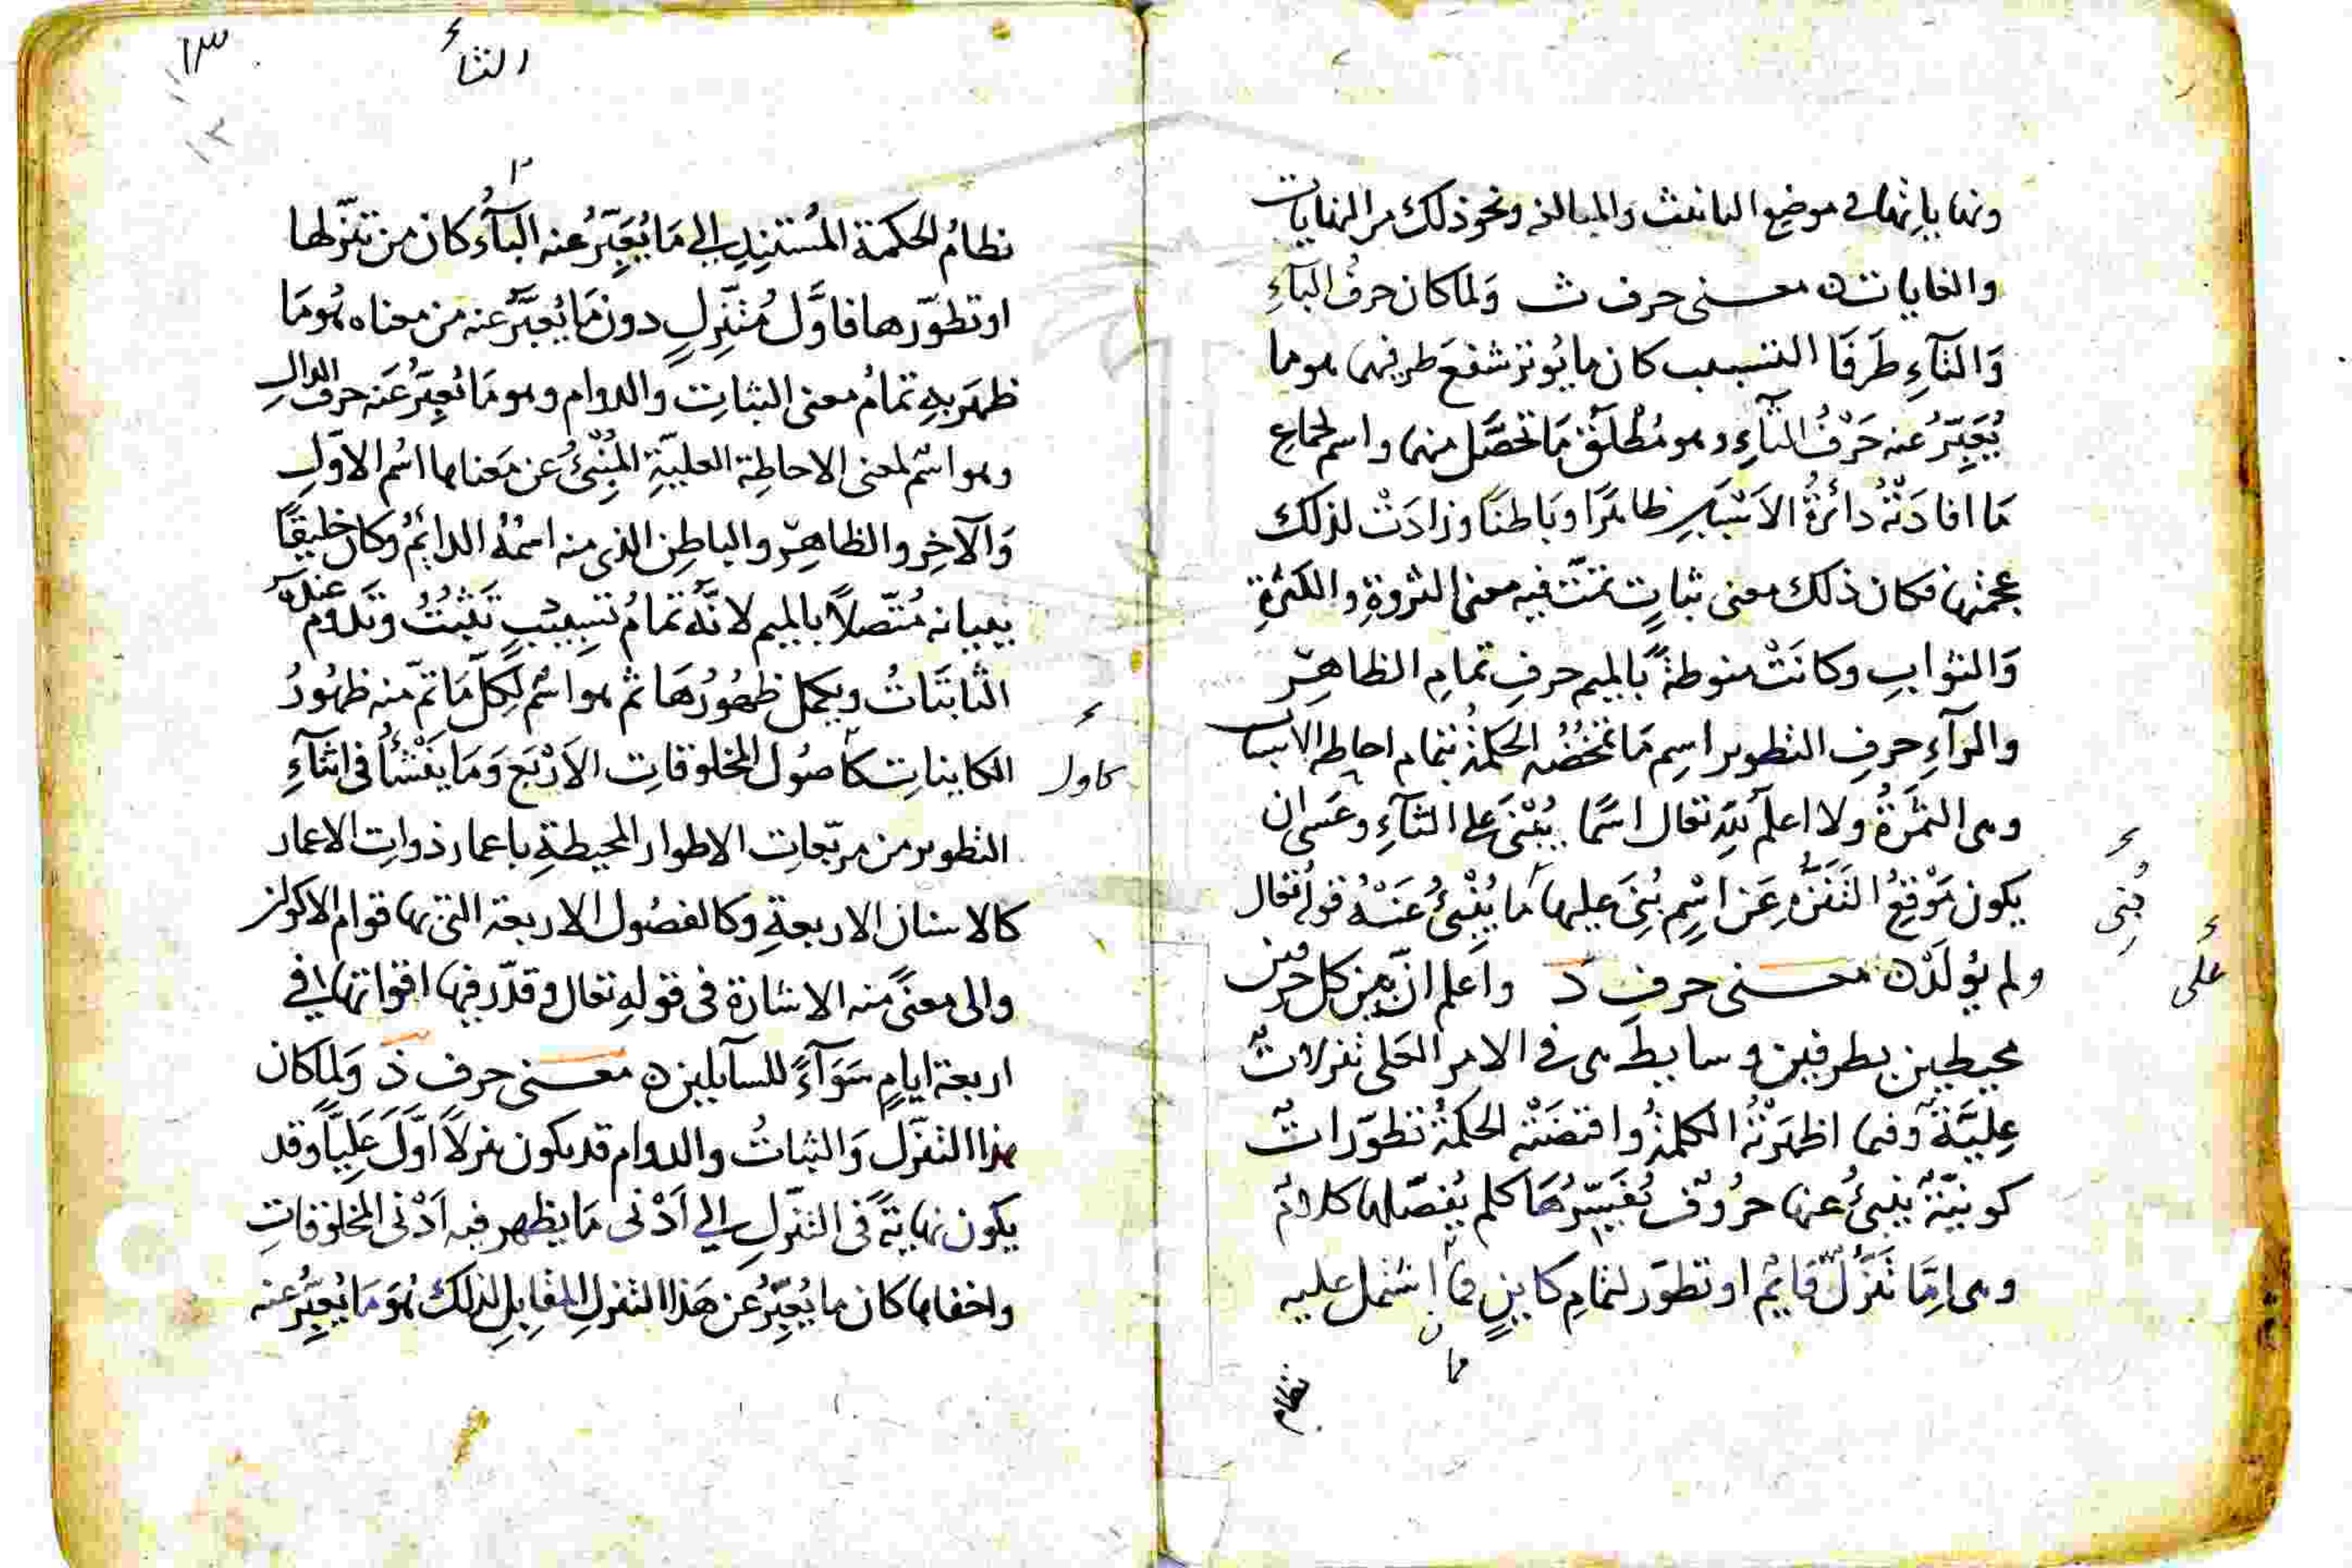 ونهاياتها في موضع التانيث والمبالغة ونحو ذلك من النهايات
والغايات ه معنى حرف ث ولما كان حرف البآءِ
وَالتآءِ طَرَفَا التسبيب كان ما يُوتر شفعَ طرفيهما هو ما
يُعَبِّرُ عنه حَرْفُ الثآءِ وهو مُطْلَقُ مَا تحصَّل منهما واسم لجماعِ
مَا افادَتْهُ دائرةُ الاَسْبَابِ ظاهرًا وبَاطنًا وزادَتْ لذلك
عجمتها فكان ذلك معنى ثباتٍ تمّت فيه معنى الثروةِ والكثرةِ
وَالثوابِ وكانَتْ منوطةً بالميم حرفِ تمامِ الظاهِرِ
والرآءِ حرفِ التطوير اسِم مَا تمخضُه الحكمةُ بتمام احاطة الاسباب
وهى الثمَرَةُ ولا اعلم لله تعالى اسمًا يُبْنَى على الثآءِ وعسَى ان
يكون مَوْقِعُ التَنَزُّهِ عَن اسْمٍ بُنِىَ عليها مَا يُنْبِئُ عَنْهُ قوله تعالى
ولم يُولَدْ ه معنى حرفِ دَ واعلم انّ بين كل حرفين
محيطين بطرفين وسايط هى فى الامر العَلى تنزلاتٌ
عِليّةٌ وفيما اظهَرَتْهُ الكلمةُ واقتضَتْه الحكمةُ تطوّراتٌ
كونيّةٌ ينبئُ عنها حرُوفٌ تُفَسِّرُهَا كلم يُفصّلها كلامٌ
وهى اِمّا تَنَزُّلٌ قايمٌ او تطوّر لتمامِ كاينٍ فما اشتمل عليه
فما
نظام
بُنى
على
الثاء
١٣
١٣
نظامُ الحكمة المُستندِ الى مَا يُعَبِّرُ عنه البآءُ كان من تنزّلها
او تطوّرها فاوَّل مُتنَزِّلٍ دون مَا يُعبَّرُ عنه من معناه هُو مَا
ظهَر بهِ تمامُ معنى الثباتِ والدوام وهو مَا يُعبِّرُ عنه حرفُ الدالِ
وهو اسْم لمعنى الاحاطِة العليّةِ المُنْبِئُ عن مَعناها اسْم الاوّلِ
وَالآخِر والظاهِر والباطِن الذى منه اسْمُهُ الدايُم وكان خليقًا
ببيانه مُتّصلاً بالميم لانّهُ تمَامُ تسبِيْبٍ تَثبُتُ وتَدُوم عنده
الثابتَاتُ ويكمل ظهُورُهَا ثم هو اسْم لِكلّ مَا تمّ منه ظهُورُ
الكاينَاتِ كاصُول المخلوقاتِ الاَرْبَع وَمَا يَنْشَأُ فى اثنآءِ
كاول
التطوير من مربّعات الاطوار المحيطةِ باعمار ذوات الاعمار
كالاسنان الاربعةِ وكالفصُول الاربعة التى بها قوام الاكوان
والى معنىً منه الاشارة فى قولهِ تعالى وقدّر فيها اقواتها فى
اربعة ايامٍ سَوَآءً للسآيلين ه معنى حرف ذَ وَلما كان
هذا التنزّل وَالثباتُ والدوام قد يكون نزلاً اوَّلَ عَليّاً وقد
يكون نهايةً فى التنزّلِ الى اَدْنى مَا يظهر فيه اَدْنى المخلوقاتِ
واخفاها كان ما يُعبِّرُ عن هَذا التنزلِ المقابِل لذلك هُوَ مَا يُعبِّرُ عنه